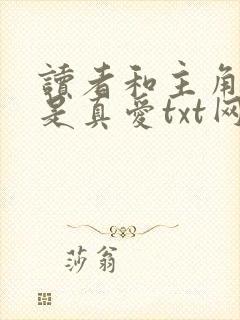 讀者和主角
是真愛txt网
莎翁